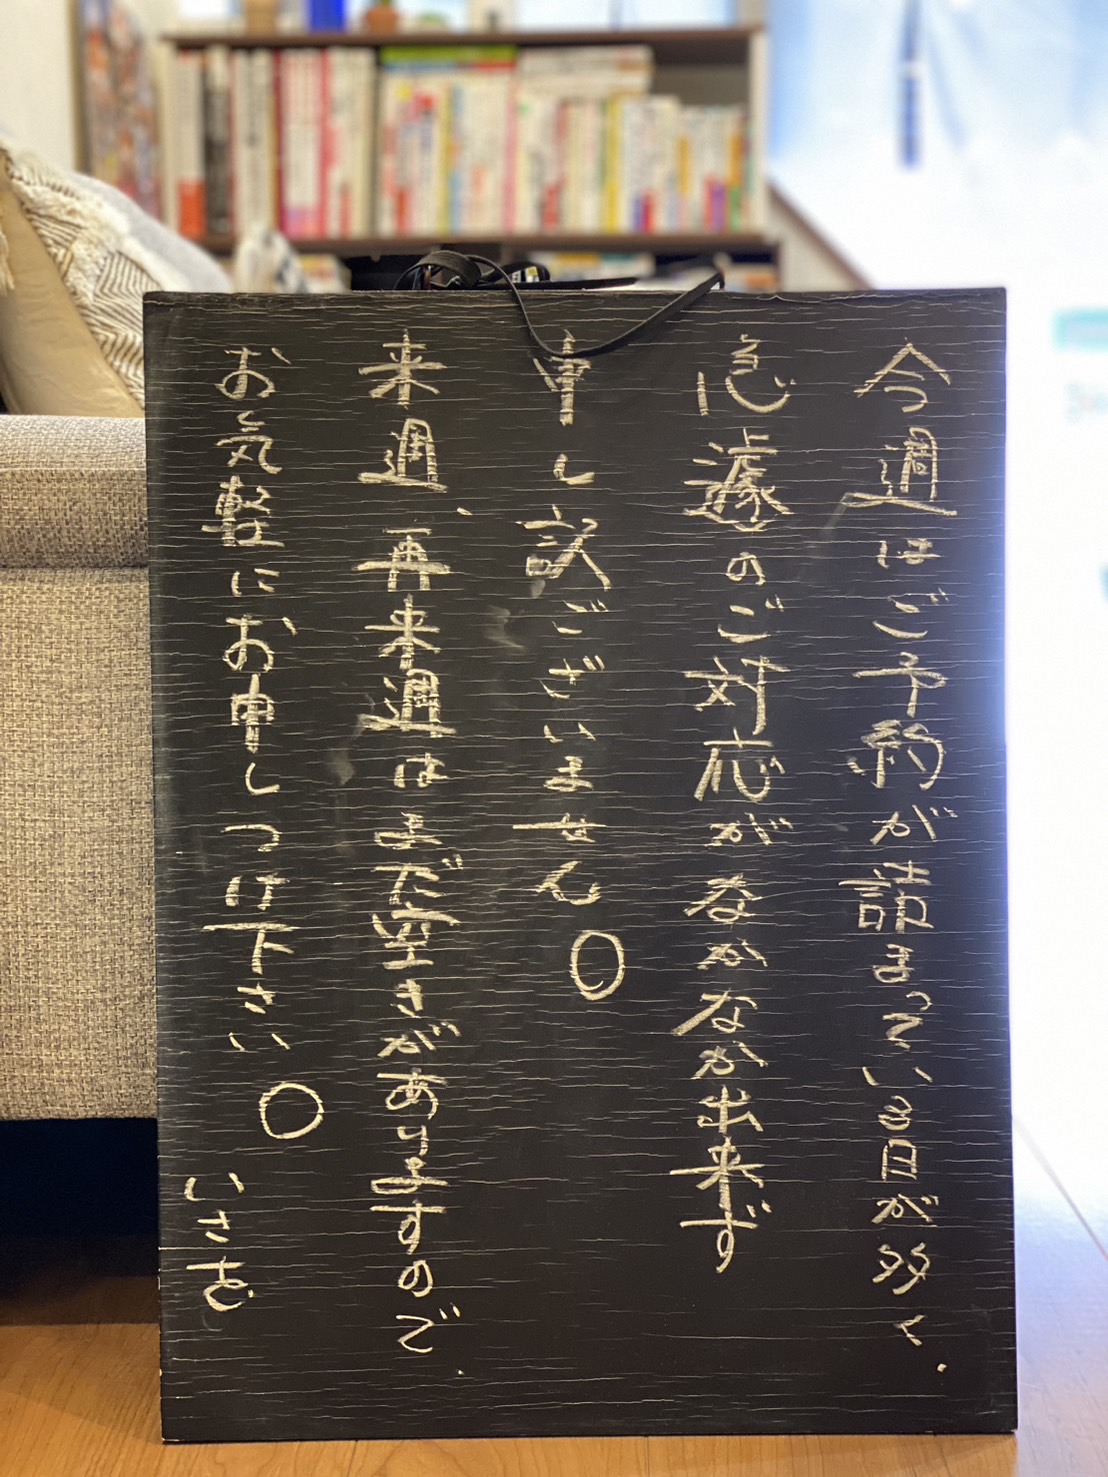 今週はご予約が詰まっている日が多く、
急遽のご対応がなかなか出来ず
申し訳ございません。
来週、再来週はまだ空きがありますので、
お気軽にお申しつけ下さい。 いさむ